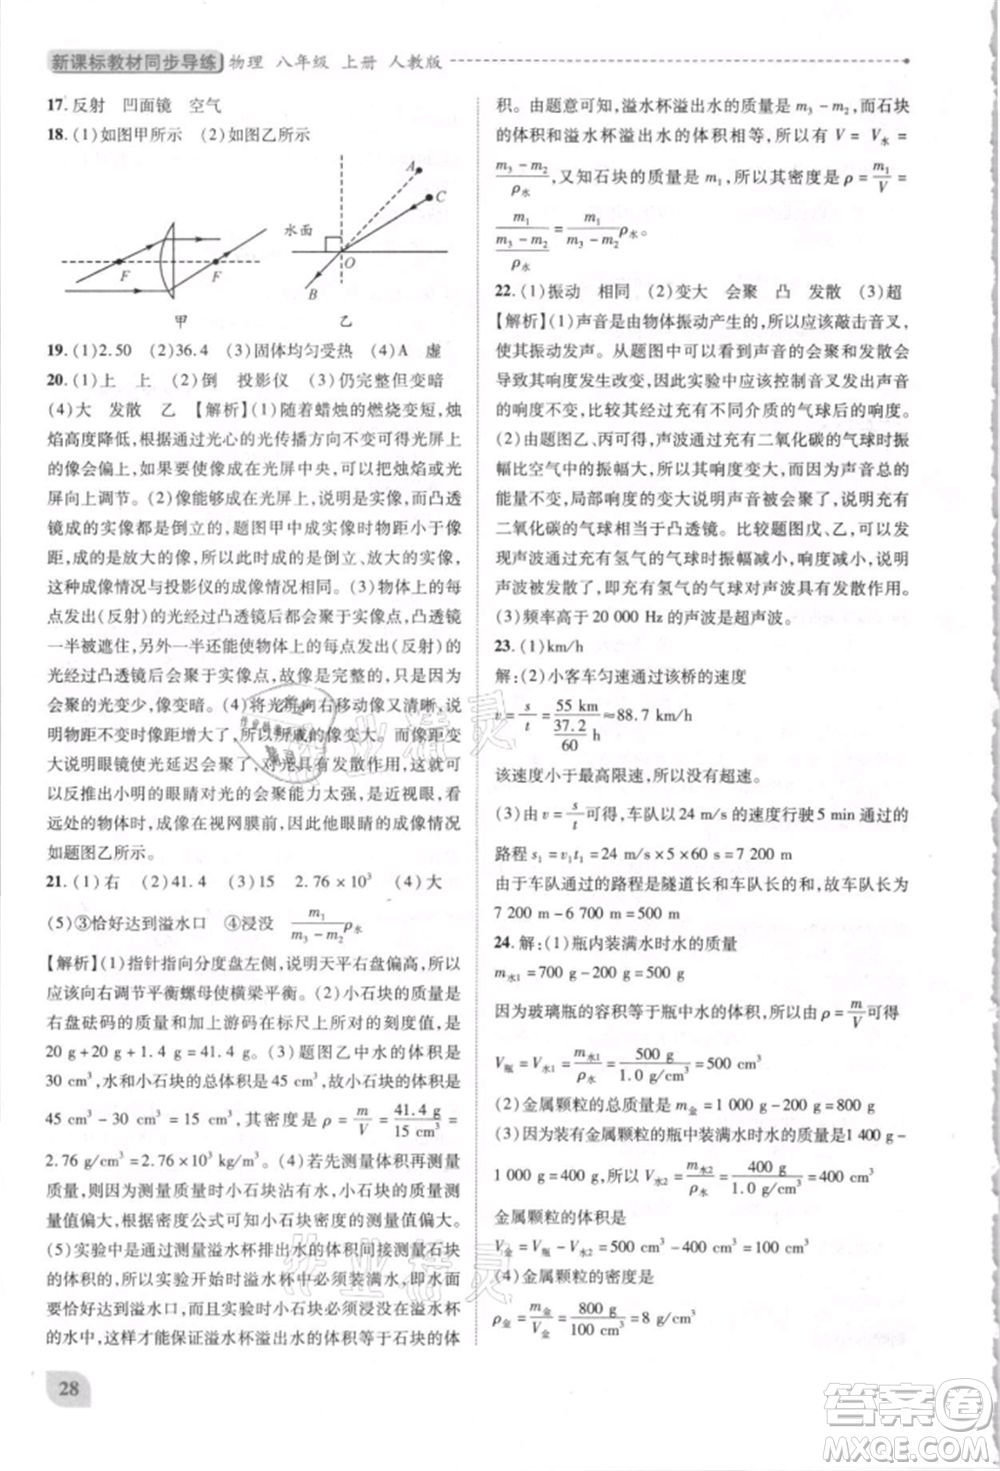 新课标教材同步导练 物理 八年级 上册 人教版
17. 反射 凹面镜 空气
18. (1)如图甲所示 (2)如图乙所示
F F 甲
水面 A C O B 乙
19. (1)2.50 (2)36.4 (3)固体均匀受热 (4)A 虚
20. (1)上 上 (2)倒 投影仪 (3)仍完整但变暗
(4)大 发散 乙 【解析】(1)随着蜡烛的燃烧变短,烛
焰高度降低,根据通过光心的光传播方向不变,烛焰
的像会向上移动,要使像成在光屏中央,可以把烛焰或光
屏向上调节。(2)像能够成在光屏上,说明是利用凸透
镜成的实像都是倒立的,题图甲中成实像时物距小于像
距,成的是放大的像,所以此时成的是倒立、放大的实像,
这种成像情况与投影仪的成像情况相同。(3)物体上的每
点发出(反射)的光经过凸透镜后都能会聚成像,凸透镜
一半被遮住,另外一半还能使物体上每一点发出(反射)
的光经过凸透镜后会聚于光屏,故像是完整的,但由于
会聚的光少,像变暗。(4)将光屏向右移动像又清晰,说
明物距不变时,像距变大,所成的像变大,
因此眼镜使光延迟会聚了,对光具有发散作用,由此可
以反推出小明的眼睛对光的会聚能力太强,是近视眼,看
远处的物体时,成像在视网膜前,因此他眼睛的成像情况
如题图乙所示。
21. (1)右 (2)41.4 (3)15 2.76×10³ (4)大
(5)③恰好达到溢水口 ④浸没 m₁/(m₃−m₂) ρ水
【解析】(1)指针指向分度盘左侧,说明天平右端高,所以
应该向右调节平衡螺母使横梁平衡。(2)小石块的质量是
右盘砝码的质量和加上游码在标尺上示的刻度值,是
20 g+20 g+1.4 g=41.4 g。(3)题图乙中水的体积是
30 cm³,水和小石块的总体积是 45 cm³,故小石块的体积是
45 cm³−30 cm³=15 cm³,其密度是 ρ=m/V=41.4 g/15 cm³=
2.76 g/cm³=2.76×10³ kg/m³。(4)若先测量体积再测量
质量,则导致测量质量时小石块沾有水,使小石块质量的测
量值偏大,根据密度公式可知小石块密度的测量值偏大。
(5)实验中是通过测量溢水杯排出水的体积间接测量石块
的体积的,所以实验开始时溢水杯中必须装满水,即水面
恰好达到溢水口,而且小石块必须浸没在溢水杯
的水中,这样才能保证溢水杯溢出水的体积等于石块的体
积。由题意可知,溢水杯溢出水的质量是 m₃−m₂,而石块
的体积和溢水杯溢出水的体积相等,所以有 V=V水=
(m₃−m₂)/ρ水,又知石块的质量是 m₁,所以其密度是 ρ=m₁/V=
m₁/((m₃−m₂)/ρ水)=m₁/(m₃−m₂) ρ水。
22. (1)振动 相同 (2)变大 会聚 凸 发散 (3)超
【解析】(1)声音是由物体振动产生的,所以应该敲击音叉,
使其振动发声。从题图可以看出声音的会聚和发散会
导致声音的响度发生改变,因此实验中应该控制音叉声音
的响度不变,比较经过充有不同介质的气球后的响度。
(2)由题图乙、丙可得,声波通过充有二氧化碳的气球时振
幅比空气中的振幅大,所以其响度变大;声音的总能量是
不变的,局部响度的变大说明声音被会聚,说明充有
二氧化碳的气球相当于凸透镜。比较题图戊、乙,可以发
现声波通过充有氢气的气球时振幅减小,响度减小,说明
声波被发散了,因此充有氢气的气球对声波具有发散作用。
(3)频率高于20 000 Hz的声波是超声波。
23. (1)km/h
解:(2)小客车匀速通过该桥的速度
v=s/t=55 km/(37.2/60 h)≈88.7 km/h
该速度小于最高限速,所以没有超速。
(3)由 v=s/t可得,车队以24 m/s的速度行驶5 min通过的
路程 s₁=v₁t₁=24 m/s×5×60 s=7 200 m
由于车队通过的路程是隧道长和车队长之和,所以车队长为
7 200 m−6 700 m=500 m
24. 解:(1)瓶内装满水时水的质量
m水1=700 g−200 g=500 g
因为玻璃瓶的容积等于瓶中水的体积,所以由 ρ=m/V可得
V瓶=V水1=m水1/ρ水=500 g/1.0 g/cm³=500 cm³
(2)金属颗粒的总质量是 m金=1 000 g−200 g=800 g
(3)因为装有金属颗粒的瓶中装满水时水的质量为1 400 g−
1 000 g=400 g,所以其体积为 V水2=m水2/ρ水=400 g/1.0 g/cm³=400 cm³
金属颗粒的体积是
V金=V瓶−V水2=500 cm³−400 cm³=100 cm³
(4)金属颗粒的密度是
ρ金=m金/V金=800 g/100 cm³=8 g/cm³
28
作业精灵
作业精灵
答案圈
MXQE.COM